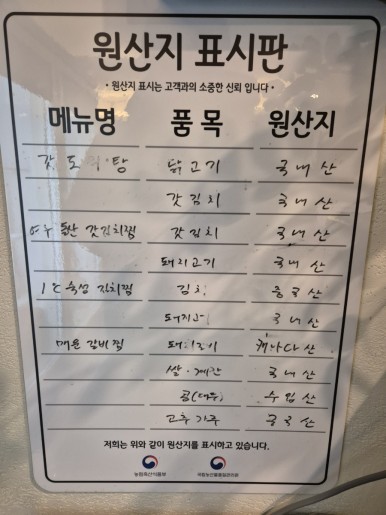 원산지 표시판
• 원산지 표시는 고객과의 소중한 신뢰 입니다 •
메뉴명 품 목 원산지
갓 도리탕 닭고기 국내산
갓김치 국내산
여수 돌산 갓김치찜 갓김치 국내산
돼지고기 국내산
1℃ 숙성 김치찜 김치 중국산
돼지고기 국내산
매운 갈비찜 돼지고기 캐나다산
쌀 · 계란 국내산
콩(대두) 수입산
고추가루 중국산
저희는 위와 같이 원산지를 표시하고 있습니다.
농림축산식품부 국립농산물품질관리원